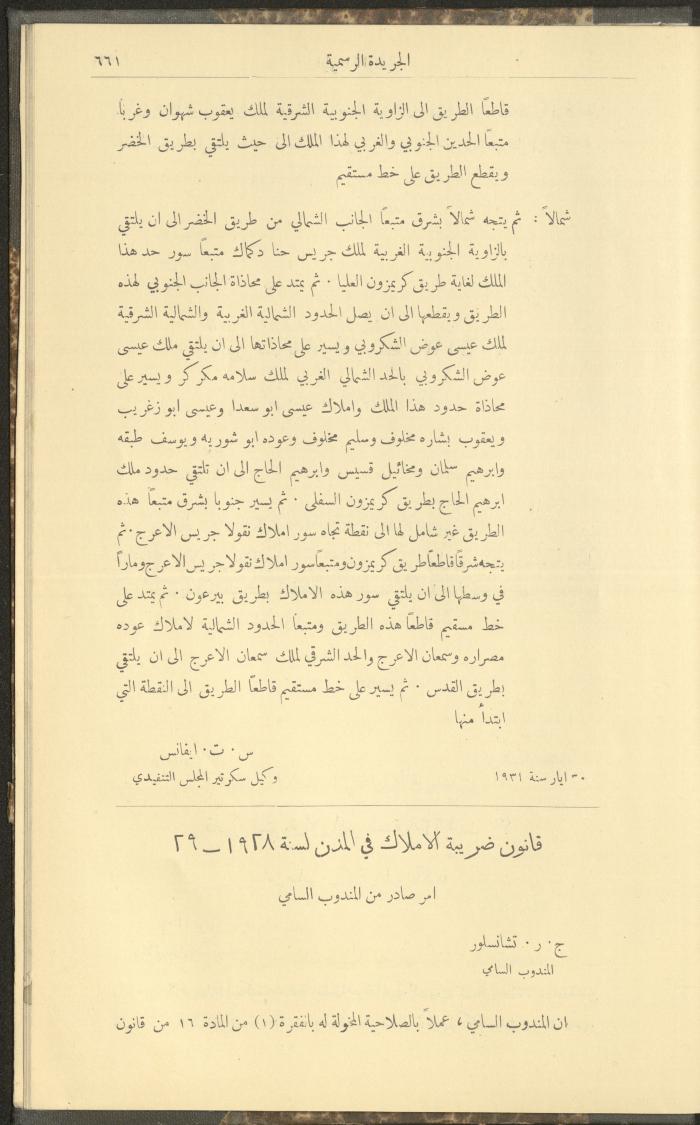 الجريدة الرسمية
٦٦١
قاطعًا الطريق الى الزاوية الجنوبية الشرقية لملك يعقوب شهوان وغربًا
متبعًا الحدين الجنوبي والغربي لهذا الملك الى حيث يلتقي بطريق الخضر
ويقطع الطريق على خط مستقيم
شمالاً : ثم يتجه شمالاً بشرق متبعًا الجانب الشمالي من طريق الخضر الى ان يلتقي
بالزاوية الجنوبية الغربية لملك جريس حنا دكماك متبعًا سور حد هذا
الملك لغاية طريق كريمزون العليا . ثم يمتد على محاذاة الجانب الجنوبي لهذه
الطريق ويقطعها الى ان يصل الحدود الشمالية الغربية والشمالية الشرقية
لملك عيسى عوض الشكروبي ويسير على محاذاتها الى ان يلتقي ملك عيسى
عوض الشكروبي بالحد الشمالي الغربي لملك سلامه مكركر ويسير على
محاذاة حدود هذا الملك واملاك عيسى ابو سعدا وعيسى ابو زغريب
ويعقوب بشاره مخلوف وسليم مخلوف وعوده ابو شوريه ويوسف طبقه
وابرهيم سلمان ومخائيل قسيس وابرهيم الحاج الى ان تلتقي حدود ملك
ابرهيم الحاج بطريق كريمزون السفلى . ثم يسير جنوبا بشرق متبعًا هذه
الطريق غير شامل لها الى نقطة تجاه سور املاك نقولا جريس الاعرج . ثم
يتجه شرقًا قاطعًا طريق كريمزون ومتبعًا سور املاك نقولا جريس الاعرج ومارًا
في وسطها الى ان يلتقي سور هذه الاملاك بطريق بيرعون . ثم يمتد على
خط مسقيم قاطعًا هذه الطريق ومتبعًا الحدود الشمالية لاملاك عوده
مصراره وسمعان الاعرج والحد الشرقي لملك سمعان الاعرج الى ان يلتقي
بطريق القدس . ثم يسير على خط مستقيم قاطعًا الطريق الى النقطة التي
ابتدأ منها
س . ت . ايفانس
٣٠ ايار سنة ١٩٣١
وكيل سكرتير المجلس التنفيدي
قانون ضريبة الاملاك في المدن لسنة ١٩٢٨ـ٢٩
امر صادر من المندوب السامي
ج . ر . تشانسلور
المندوب السامي
ان المندوب السامي ، عملاً بالصلاحية المخولة له بالفقرة (١) من المادة ١٦ من قانون